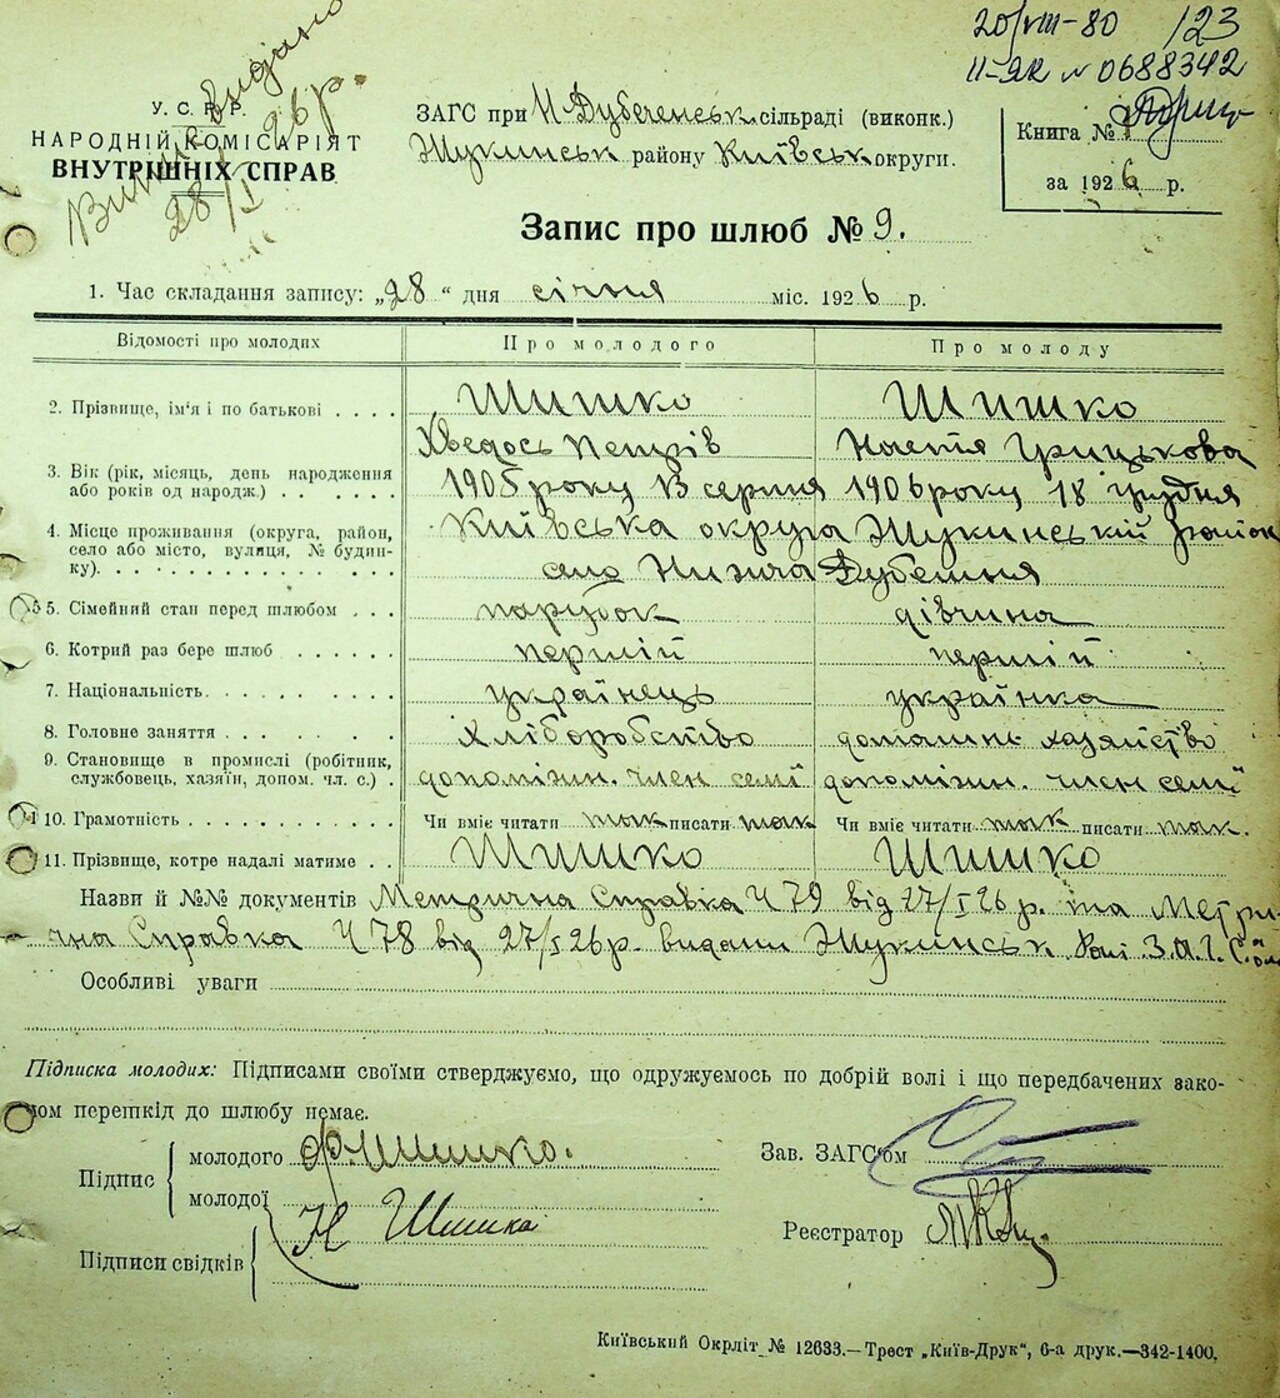 20/VIII-80 123
II-ЯК № 0688342
Виписа видано
28/I 26 р.
У. С. Р. Р.
НАРОДНІЙ КОМІСАРІЯТ
ВНУТРІШНІХ СПРАВ
ЗАГС при Н Дубеченськ. сільраді (виконк.)
Жукинськ району Київськ округи.
Книга № 1
за 1926 р.
Запис про шлюб № 9.
1. Час складання запису: „28“ дня січня міс. 1926 р.
Відомості про молодих Про молодого Про молоду
2. Прізвище, ім'я і по батькові . . . . Шишко Шишко
Хведось Петрів Настя Грицькова
3. Вік (рік, місяць, день народження
або років од народж.) . . . . . . 1905 року 13 серпня 1906 року 18 грудня
4. Місце проживання (округа, район,
село або місто, вулиця, № будин-
ку). . . . . . . . . . . . . .
Київська округа Жукинській район
село Нижча Дубешня
5. Сімейний стан перед шлюбом . . . парубок дівчина
6. Котрий раз бере шлюб . . . . . . перший перший
7. Національність. . . . . . . . . українець українка
8. Головне заняття . . . . . . . хліборобство домашнє хазяйство
9. Становище в промислі (робітник,
службовець, хазяїн, допом. чл. с.) . допоміжн. член семї допоміжн. член семї
10. Грамотність . . . . . . . . . . . Чи вміє читати так писати так Чи вміє читати так писати так.
11. Прізвище, котре надалі матиме . . Шишко Шишко
Назви й №№ документів Метрична Справка Ч 79 від 27/I 26 р. та Метри-
чна Справка Ч 78 від 27/I 26 р. видани Жукинськ. Рай. З.А.Г.С.
Особливі уваги
Підписка молодих: Підписами своїми стверджуємо, що одружуємось по добрій волі і що передбачених зако-
ном перешкід до шлюбу немає.
Підпис
молодого Ф. Шишко.
молодої
Н Шишка
Підписи свідків
Зав. ЗАГС'ом
Реєстратор
Київський Окрліт № 12633.—Трест „Київ-Друк“, 6-а друк.—342-1400.